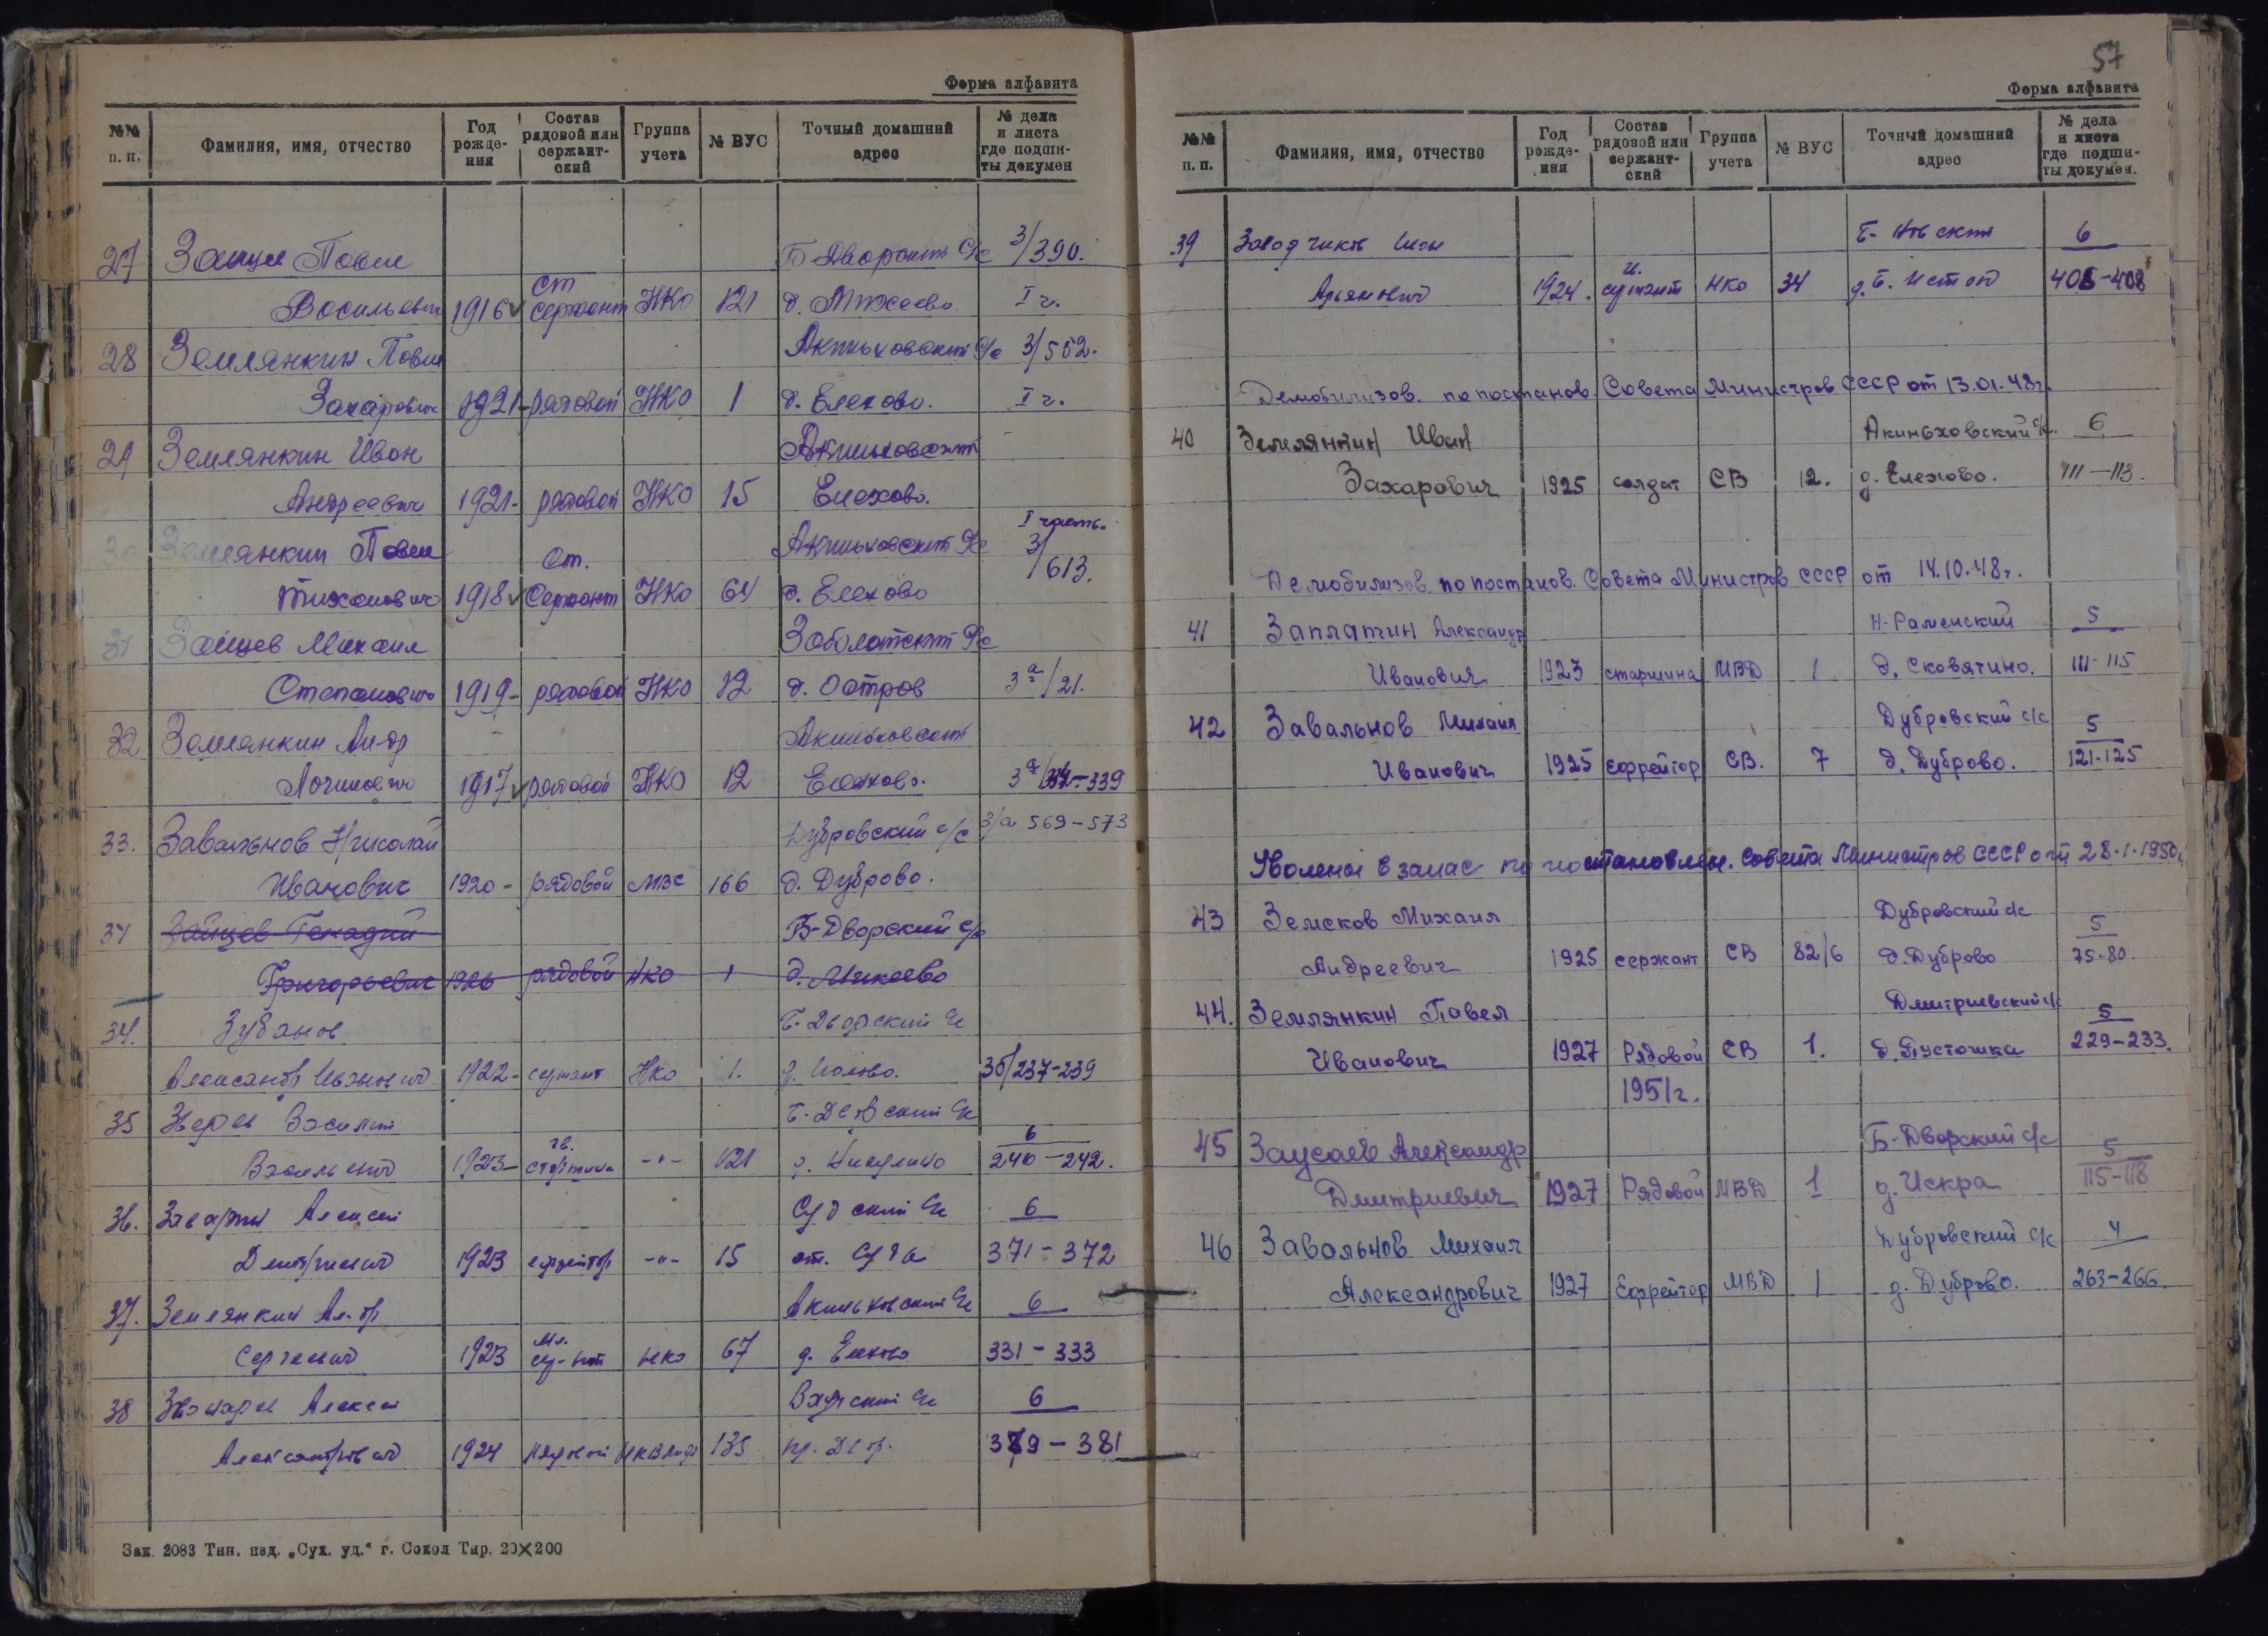 Форма алфавита
№№ п. п. Фамилия, имя, отчество Год рожде-ния Состав рядовой или сержант-ский Группа учета № ВУС Точный домашний адрес № дела и листа где подши-ты докумен
27 Зайцев Павел Б Дворский с/с 3/390.
Васильевич 1916 ст сержант НКО 121 д. Михеево I ч.
28 Землянкин Павел Акиньховский с/с 3/552.
Захарович 1921 - рядовой НКО 1 д. Елехово. I ч.
29 Землянкин Иван Акиньховский
Андреевич 1921 - рядовой НКО 15 Елехово.
30 Землянкин Павел Акиньховский с/с I часть. 3/613.
Тихонович 1918 Ст. Сержант НКО 64 д. Елехово
31 Зайцев Михаил Заболотский с/с
Степанович 1919 - рядовой НКО 12 д. Остров 3а/21.
32 Землянкин Ал-др Акиньховский
Логинович 1917 рядовой НКО 12 Елехово. 3а/337-339
33. Завальнов Николай Дубровский с/с 3/а 569-573
Иванович 1920 - рядовой МВС 166 д. Дуброво.
34 Зайцев Генадий Б-Дворский с/с
Григорьевич 1926 рядовой НКО 1 д. Михеево
34. Зубанов Б-Дворский с/с
Александр Иванович 1922 - сержант НКО 1. 3б/237-239
35 Зверев Василий Б-Дворский с/с 6
Васильевич 1923 - гв. старшина -"- 121 240-242.
36. Алексей Судский с/с 6
Дмитриевич 1923 ефрейтор -"- 15 ст. Суда 371-372
37. Землянкин Ал-др Акиньховский с/с 6
Сергеевич 1923 мл. сер-нт НКО 67 д. Елехово 331-333
38 Алексей с/с 6
Александрович 1924 рядовой 135 379-381
Зак 2083 Тип. изд. „Сух. уд.“ г. Сокол Тир. 20×200
57
Форма алфавита
№№ п. п. Фамилия, имя, отчество Год рожде-ния Состав рядовой или сержант-ский Группа учета № ВУС Точный домашний адрес № дела и листа где подши-ты докумен.
39 Иван 6
1924. сержант НКО 34 д. Б. Исток 405-408
Демобилизов. по постанов. Совета Министров СССР от 13.01.48г.
40 Землянкин Иван Акиньховский с/с. 6
Захарович 1925 солдат СВ 12. д. Елехово. 111-113.
Демобилизов. по постанов. Совета Министров СССР от 14.10.48г.
41 Заплатин Александр Н-Раменский 5
Иванович 1923 старшина МВД 1 д. Сковятино. 111-115
42 Завальнов Михаил Дубровский с/с 5
Иванович 1925 Ефрейтор СВ. 7 д. Дуброво. 121-125
Уволены в запас по постановлен. Совета Министров СССР от 28.1.1950г.
43 Земсков Михаил Дубровский с/с 5
Андреевич 1925 сержант СВ 82/6 д. Дуброво 75-80.
44. Землянкин Павел Дмитриевский с/с 5
Иванович 1927 Рядовой СВ 1. д. Пустошка 229-233.
1951г.
45 Заусаев Александр Б-Дворский с/с 5
Дмитриевич 1927 Рядовой МВД 1 д. Искра 115-118
46 Завальнов Михаил Дубровский с/с 4
Александрович 1927 Ефрейтор МВД 1 д. Дуброво. 263-266.